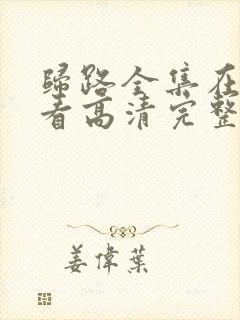 歸路全集在
看高清完整
姜偉葉